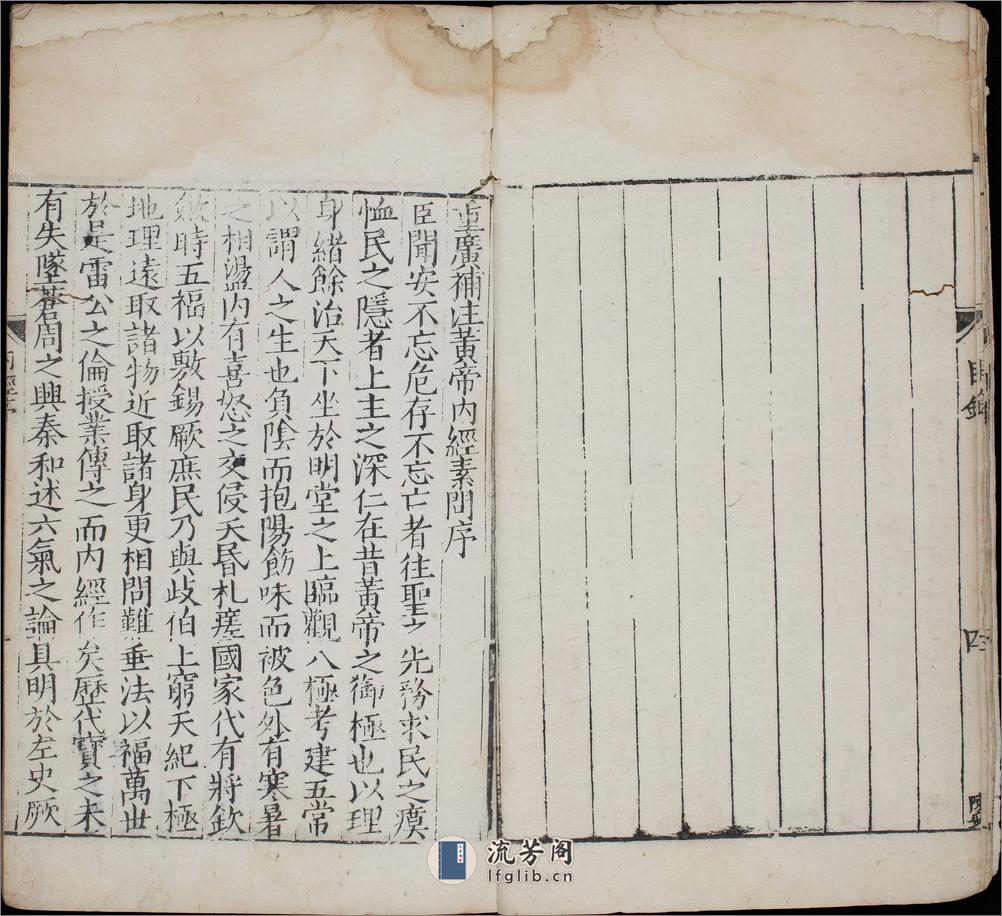 目錄
四
重廣補注黃帝內經素問序
臣聞安不忘危存不忘亡者往聖之先務求民之瘼
恤民之隱者上主之深仁在昔黃帝之御極也以理
身緒餘治天下坐於明堂之上臨觀八極考建五常
以謂人之生也負陰而抱陽飭味而被色外有寒暑
之相盪內有喜怒之交侵夭昏札瘥國家代有將欽
斂時五福以敷錫厥庶民乃與歧伯上窮天紀下極
地理遠取諸物近取諸身更相問難垂法以福萬世
於是雷公之倫授業傳之而內經作矣歷代寶之未
有失墜蒼周之興秦和述六氣之論具明於左史厥
內經序
流芳阁
lfglib.cn